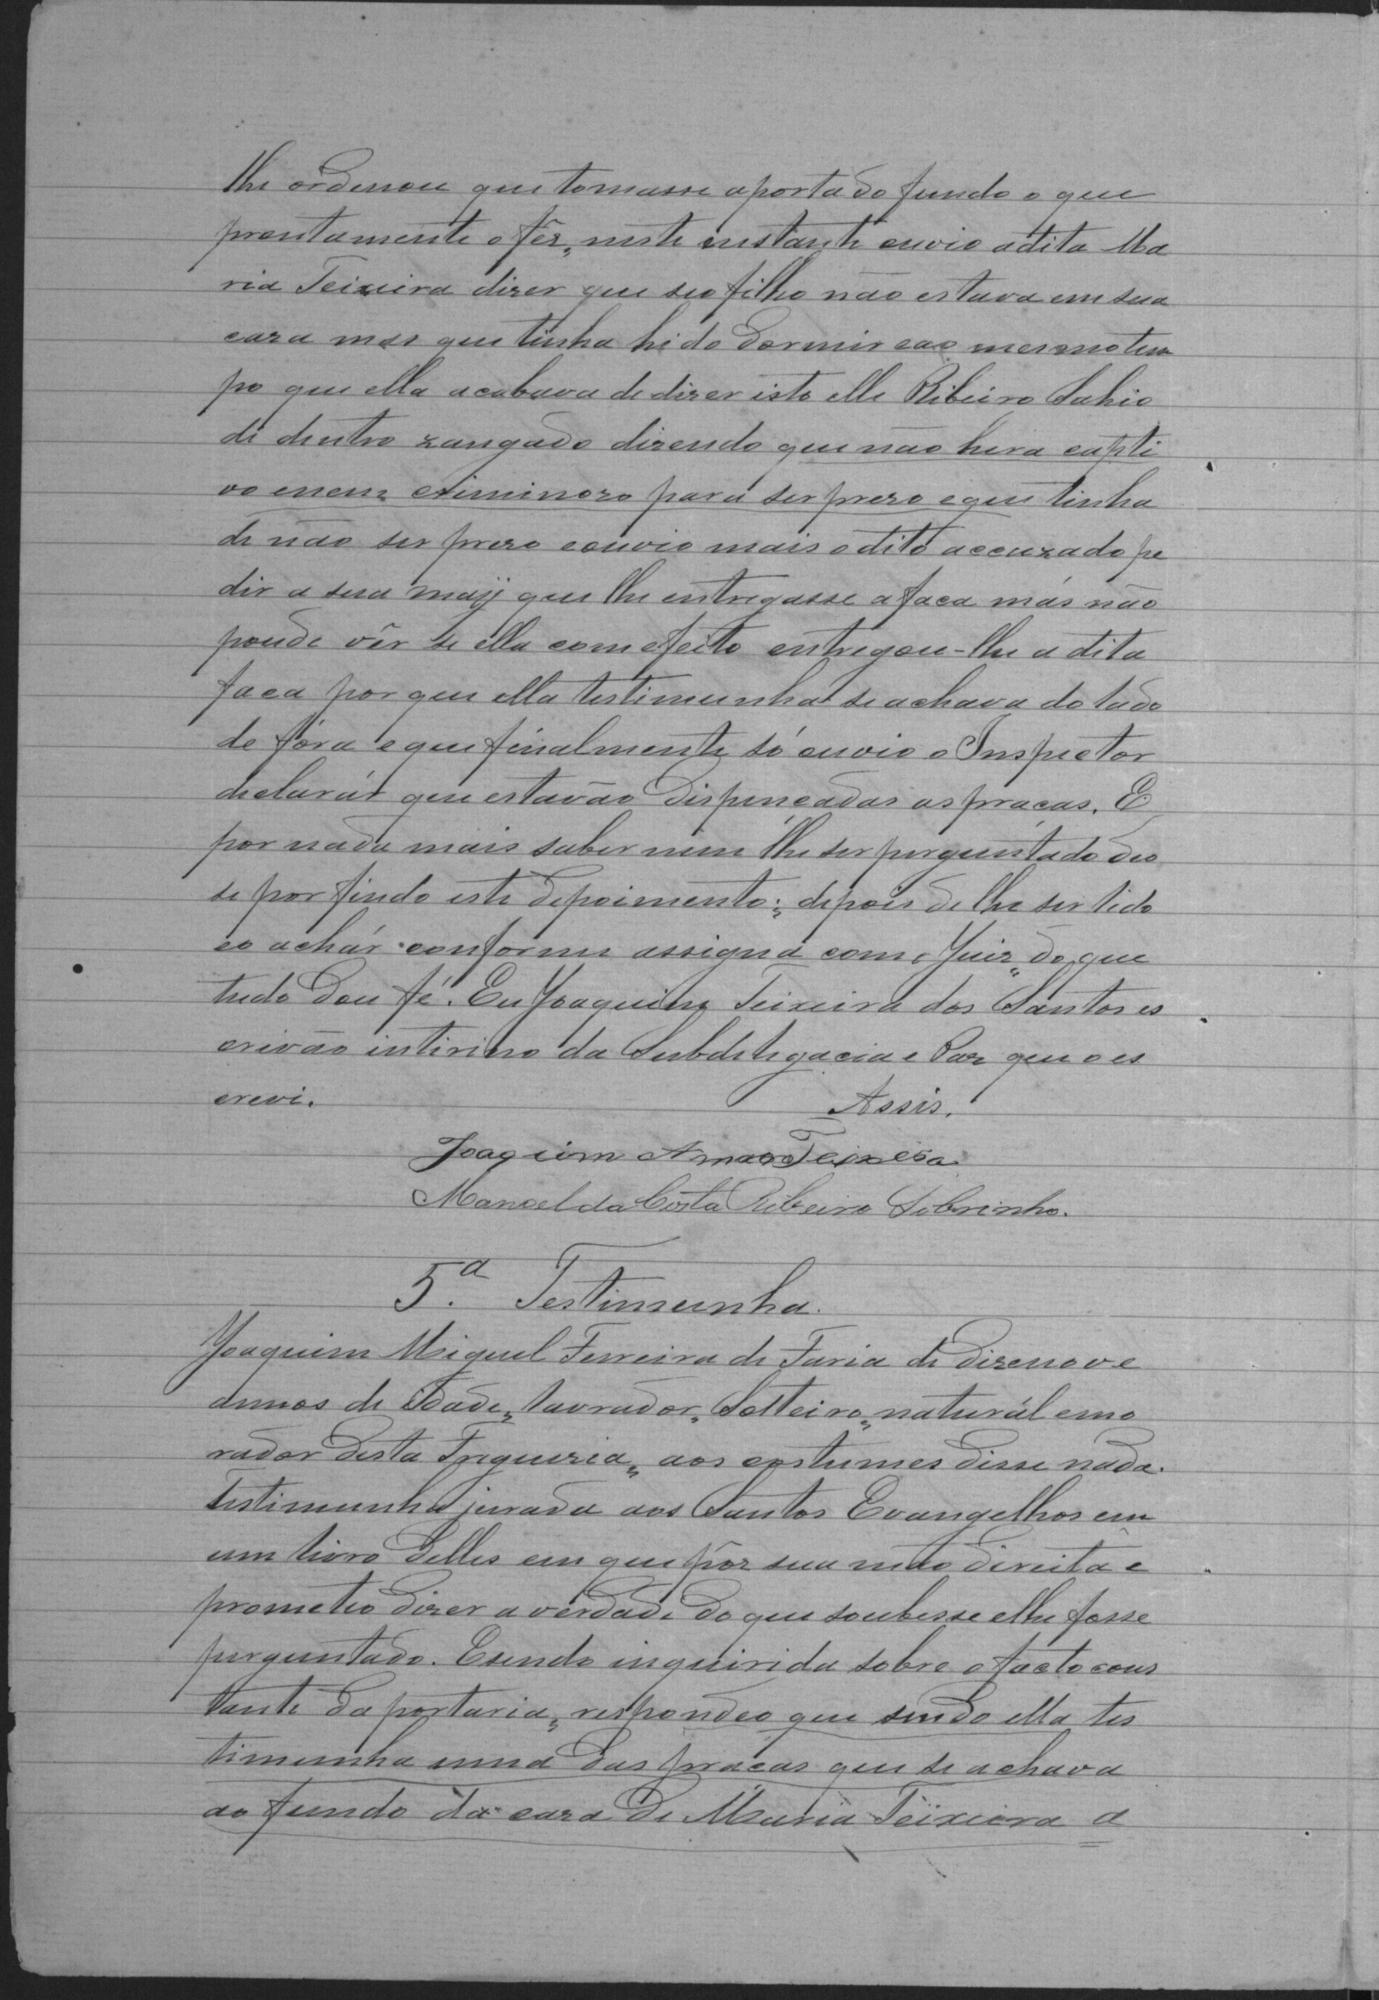 lhe ordenou que tomasse a porta do fundo o que
prontamente o fêz, neste instante ouvio a dita Ma
ria Teixeira dizer que seo filho não estava em sua
caza mas que tinha hido dormir e ao mesmo tem
po que ella acabava de dizer isto elle Ribeiro Sahio
de dentro zangado dizendo que não hera capti
vo e nem criminozo para ser prezo e que tinha
de não ser prezo e ouvio mais o dito accuzado pe
dir a sua maÿ que lhe entregasse a faca más não
poude vêr se ella com efeito entregou-lhe a dita
faca por que ella testimunha se achava do lado
de fóra e que finalmente só ouvio o Inspector
declarár que estavão dispençadas as praças. E
por nada mais saber nem lhe ser perguntado deo
se por findo este depoimento; depois de lhe ser lido
e o achár conforme assigna com o Juiz do que
tudo dou fé. Eu Joaquim Teixeira dos Santos es
crivão intirino da Subdelegacia e Paz que o es
crevi.
Assis.
Joaquim Teixeira
Manoel da Costa Ribeiro Sobrinho.
5.a Testimunha.
Joaquim Miguel Ferreira de Faria de dizenove
annos de idade, lavrador, Solteiro, naturál e mo
rador desta Freguezia, aos costumes disse nada.
Testimunha jurada aos Santos Evangelhos em
um livro delles em que pôz sua mão direita e
prometeo dizer a verdade do que soubesse e lhe fosse
perguntado. E sendo inquirida sobre o facto cons
tante da portaria, respondeo que sendo ella tes
timunha uma das praças que se achava
ao fundo da caza de Maria Teixeira a